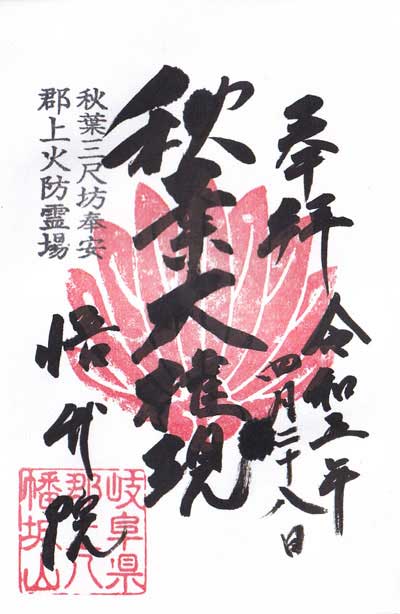 奉拝
令和五年
四月二十八日
秋葉大権現
秋葉三尺坊奉安
郡上火防霊場
悟竹院
岐阜県
郡上八
幡城山